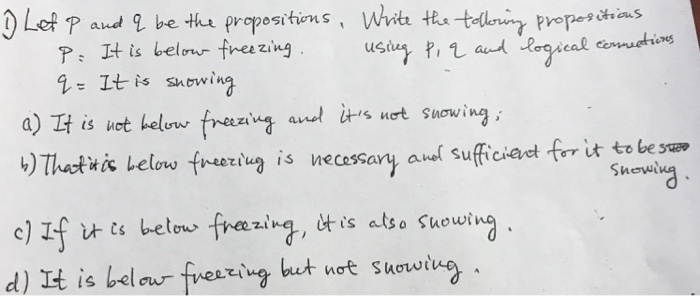 1) Let P and q be the propositions. Write the following propositions
P: It is below freezing. using p, q and logical connections
q = It is snowing
a) It is not below freezing and it's not snowing;
b) That it is below freezing is necessary and sufficient for it to be
snowing.
c) If it is below freezing, it is also snowing.
d) It is below freezing but not snowing.